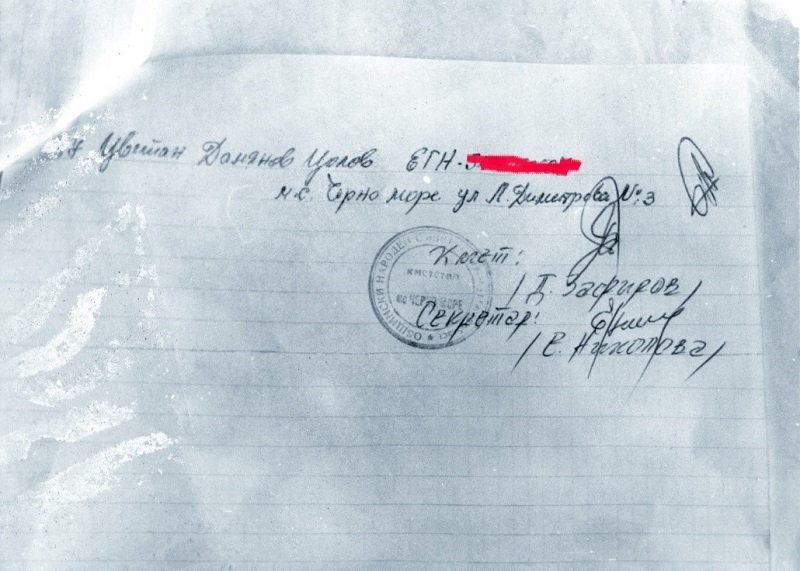 Цветан Дамянов Цолов ЕГН-
м.с. Черно море ул Л. Димитрова №3
Кмет:
/Д. Зафиров/
Секретар:
/Е. Николова/
ОБЩИНСКИ НАРОДЕН
КМЕТСТВО
ЧЕРНО МОРЕ